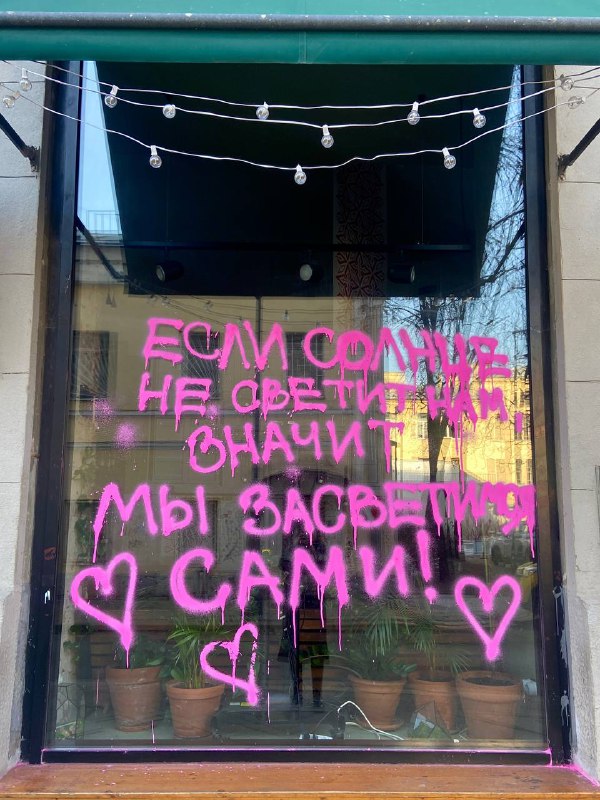 ЕСЛИ СОЛНЦЕ
НЕ СВЕТИТ НАМ,
ЗНАЧИТ
МЫ ЗАСВЕТИМСЯ
САМИ!